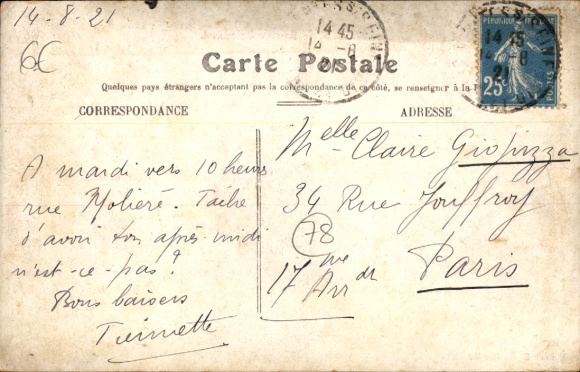 14-8-21
6€
14 45
14 -8
21
RÉPUBLIQUE FRANÇAISE
25
POSTES
14 45
14 -8
21
Carte Postale
Quelques pays étrangers n'acceptant pas la correspondance de ce côté, se renseigner à la
CORRESPONDANCE
ADRESSE
A mardi vers 10 heures
rue Molière. Tâche
d'avoir ton après-midi
n'est-ce-pas?
Bons baisers
Melle Claire
34 Rue Jouffroy
78
17me Arrdt Paris